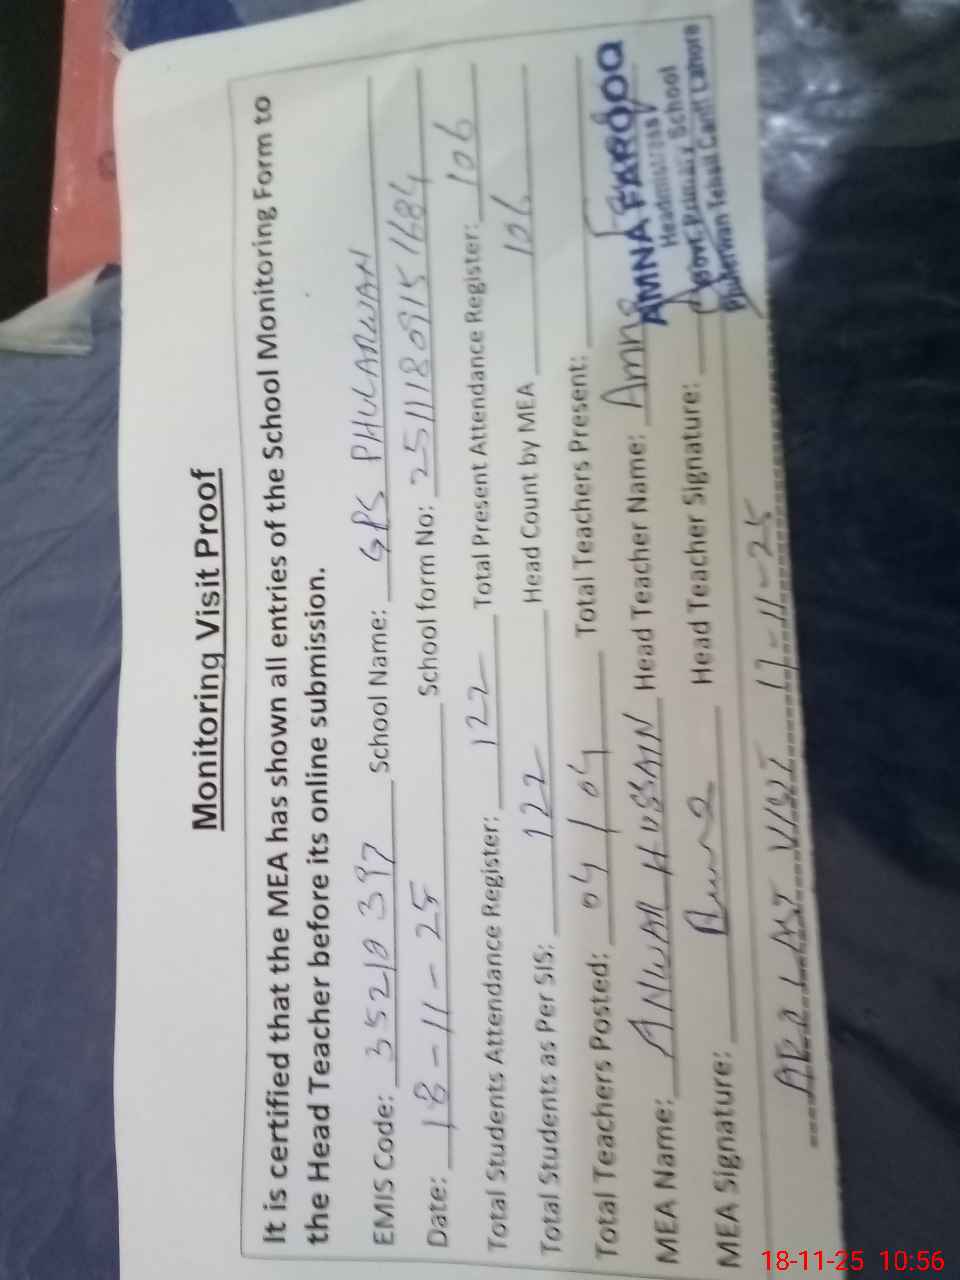 Monitoring Visit Proof
It is certified that the MEA has shown all entries of the School Monitoring Form to
the Head Teacher before its online submission.
EMIS Code: 35210397 School Name: GPS PHULARWAN
Date: 18-11-25 School form No: 25111809151684
Total Students Attendance Register: 122 Total Present Attendance Register: 106
Total Students as Per SIS: 122 Head Count by MEA 106
Total Teachers Posted: 04/04 Total Teachers Present:
MEA Name: ANWAR HUSSAIN Head Teacher Name: Amna
AMNA FAROOQ
Headmistress
Govt. Primary School
Phularwan Tehsil Cantt Lahore
MEA Signature: Head Teacher Signature:
LAST VISIT 17-11-25
18-11-25 10:56